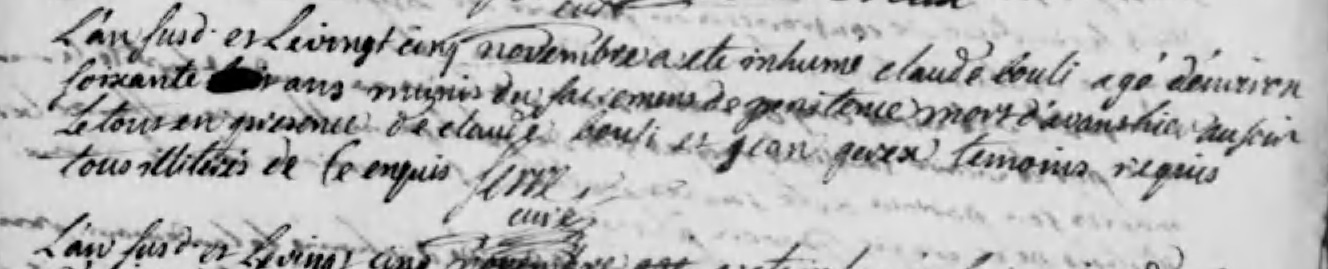 curé
L'an susd. et le vingt cinq novembre a ete inhumé claude bouli agé d'environ
soixante ans munis du sacremens de penitence mort d'avanshier au soir
le tous en presence de claude bouli et jean temoins requis
tous illiterés de ce enquis
curé
L'an susd. et le vingt cinq novembre